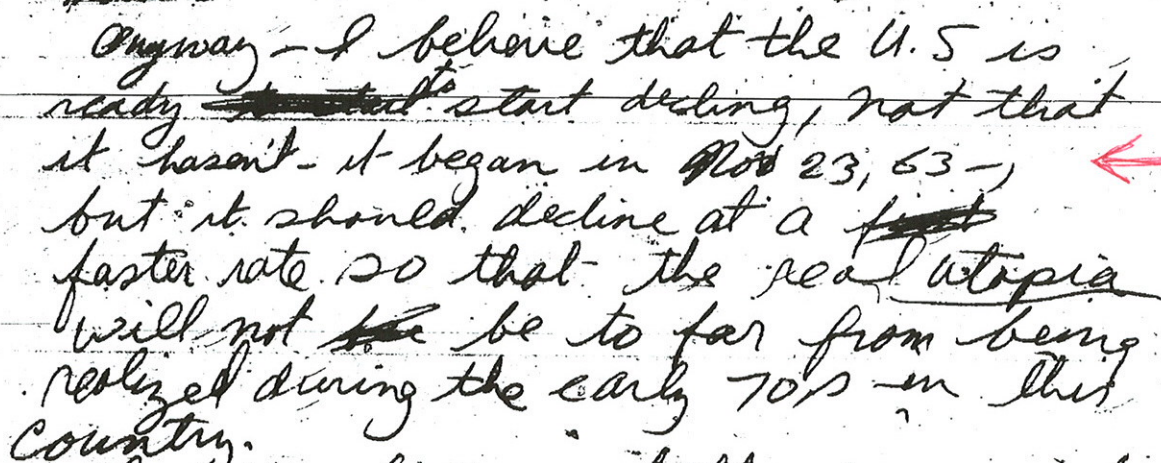 Anyway - I believe that the U.S is
ready to start decling, not that
it hasen't - it began in Nov 23, 63 -,
but it should decline at a
faster rate so that the real utopia
will not be to far from being
realized during the early 70s in this
country.